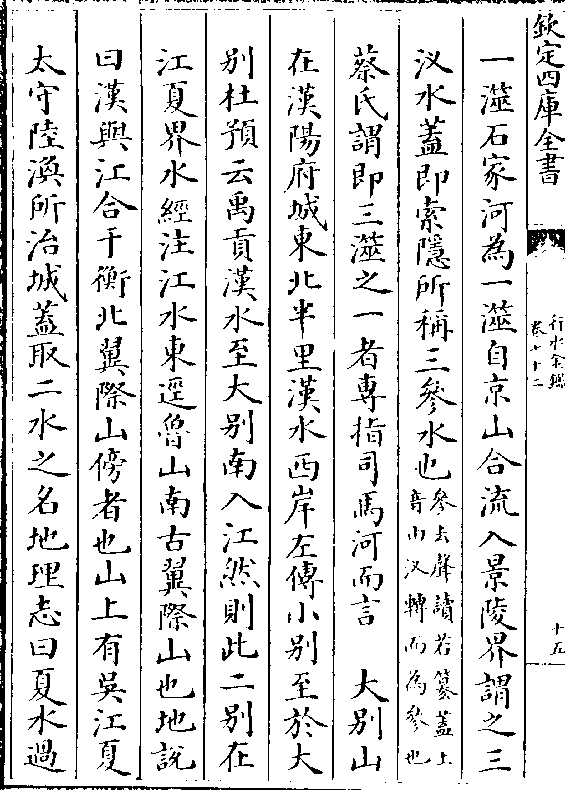 欽定四庫全書
行水金鑑
卷七十二
十五
一澨石家河為一澨自京山合流入景陵界謂之三
汊水蓋即索隱所稱三參水也參去聲讀若篸蓋上音由汊轉而為參也
蔡氏謂即三澨之一者專指司馬河而言　大别山
在漢陽府城東北半里漢水西岸左傳小别至於大
别杜預云禹貢漢水至大别南入江然則此二别在
江夏界水經注江水東逕魯山南古翼際山也地說
曰漢與江合于衡北翼際山傍者也山上有吳江夏
太守陸渙所治城蓋取二水之名地理志曰夏水過